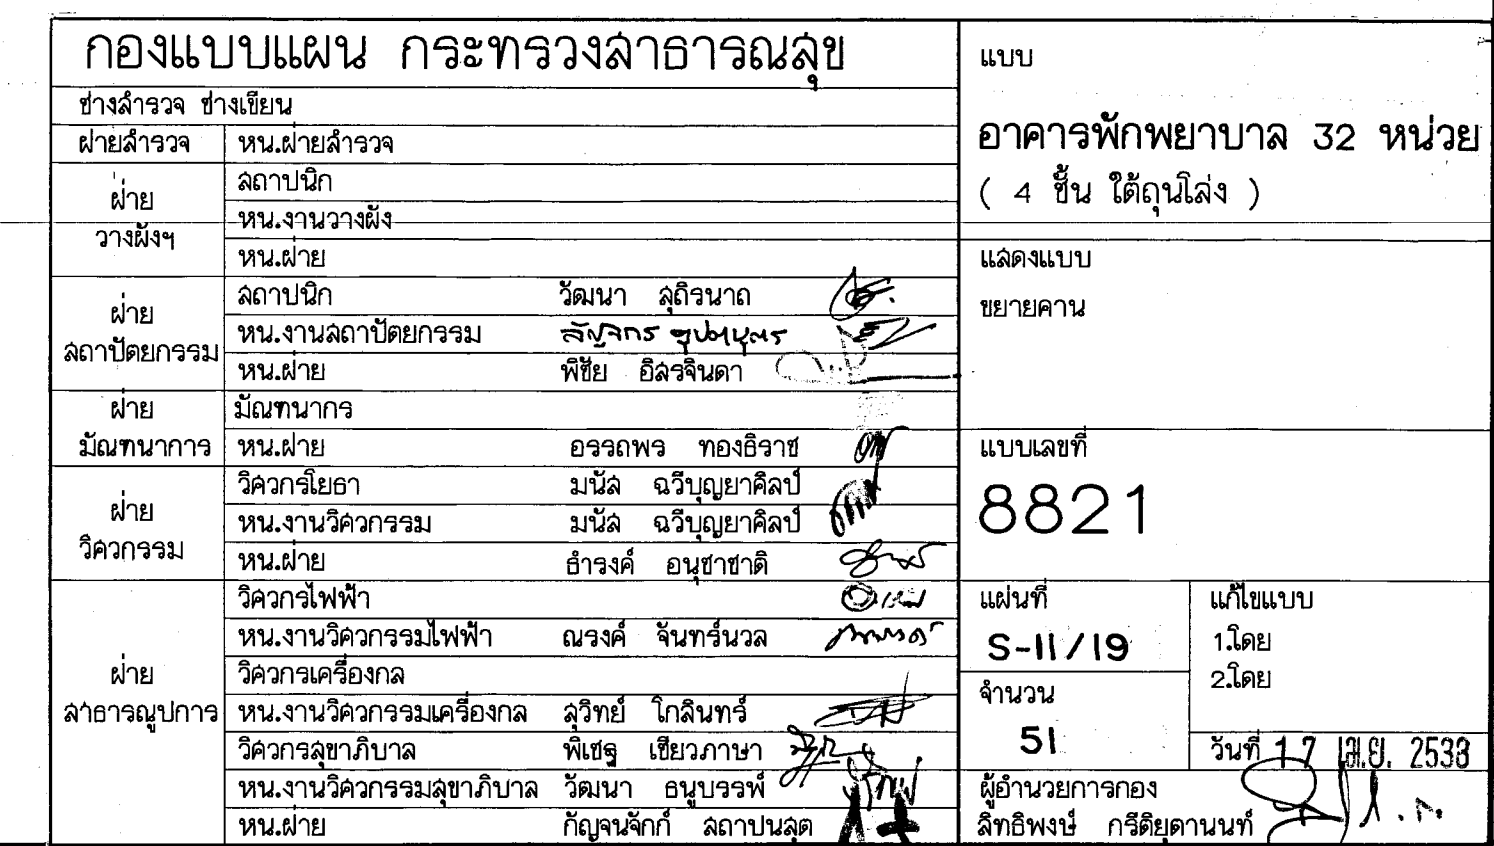 กองแบบแผน กระทรวงสาธารณสุข
ช่างสำรวจ ช่างเขียน
ฝ่ายสำรวจ หน.ฝ่ายสำรวจ
ฝ่าย
วางผังฯ
สถาปนิก
หน.งานวางผัง
หน.ฝ่าย
ฝ่าย
สถาปัตยกรรม
สถาปนิก วัฒนา สุถิรนาถ
หน.งานสถาปัตยกรรม
หน.ฝ่าย พิชัย อิสรจินดา
ฝ่าย
มัณฑนาการ
มัณฑนากร
หน.ฝ่าย อรรถพร ทองธิราช
ฝ่าย
วิศวกรรม
วิศวกรโยธา มนัส ฉวีบุญยาศิลป์
หน.งานวิศวกรรม มนัส ฉวีบุญยาศิลป์
หน.ฝ่าย ธำรงค์ อนุชาชาติ
ฝ่าย
สาธารณูปการ
วิศวกรไฟฟ้า
หน.งานวิศวกรรมไฟฟ้า ณรงค์ จันทร์นวล
วิศวกรเครื่องกล
หน.งานวิศวกรรมเครื่องกล สุวิทย์ โกสินทร์
วิศวกรสุขาภิบาล พิเชฐ เชียวภาษา
หน.งานวิศวกรรมสุขาภิบาล วัฒนา ธนูบรรพ์
หน.ฝ่าย กัญจนจักก์ สถาปนสุต
แบบ
อาคารพักพยาบาล 32 หน่วย
( 4 ชั้น ใต้ถุนโล่ง )
แสดงแบบ
ขยายคาน
แบบเลขที่
8821
แผ่นที่
S-11/19
จำนวน
51
แก้ไขแบบ
1.โดย
2.โดย
วันที่ 17 เม.ย. 2533
ผู้อำนวยการกอง
สิทธิพงษ์ กรีติยุตานนท์